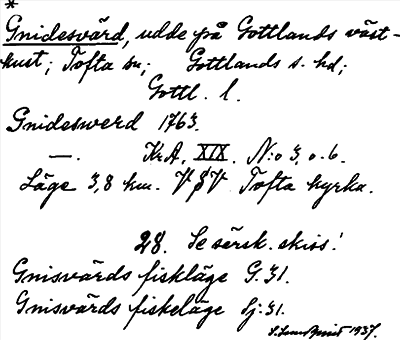 *
Gnidesvärd, udde på Gottlands väst-
kust; Tofta sn; Gottlands s. hd;
Gottl. l.
Gnideswerd 1763.
—. Kr.A. XIX. N:o 3, o. 6.
Läge 3,8 km. V S V Tofta kyrka.
28. Se särsk. skiss!
Gnisvärds fiskläge G. 31.
Gnisvärds fiskeläge Sj: 31.
1937.